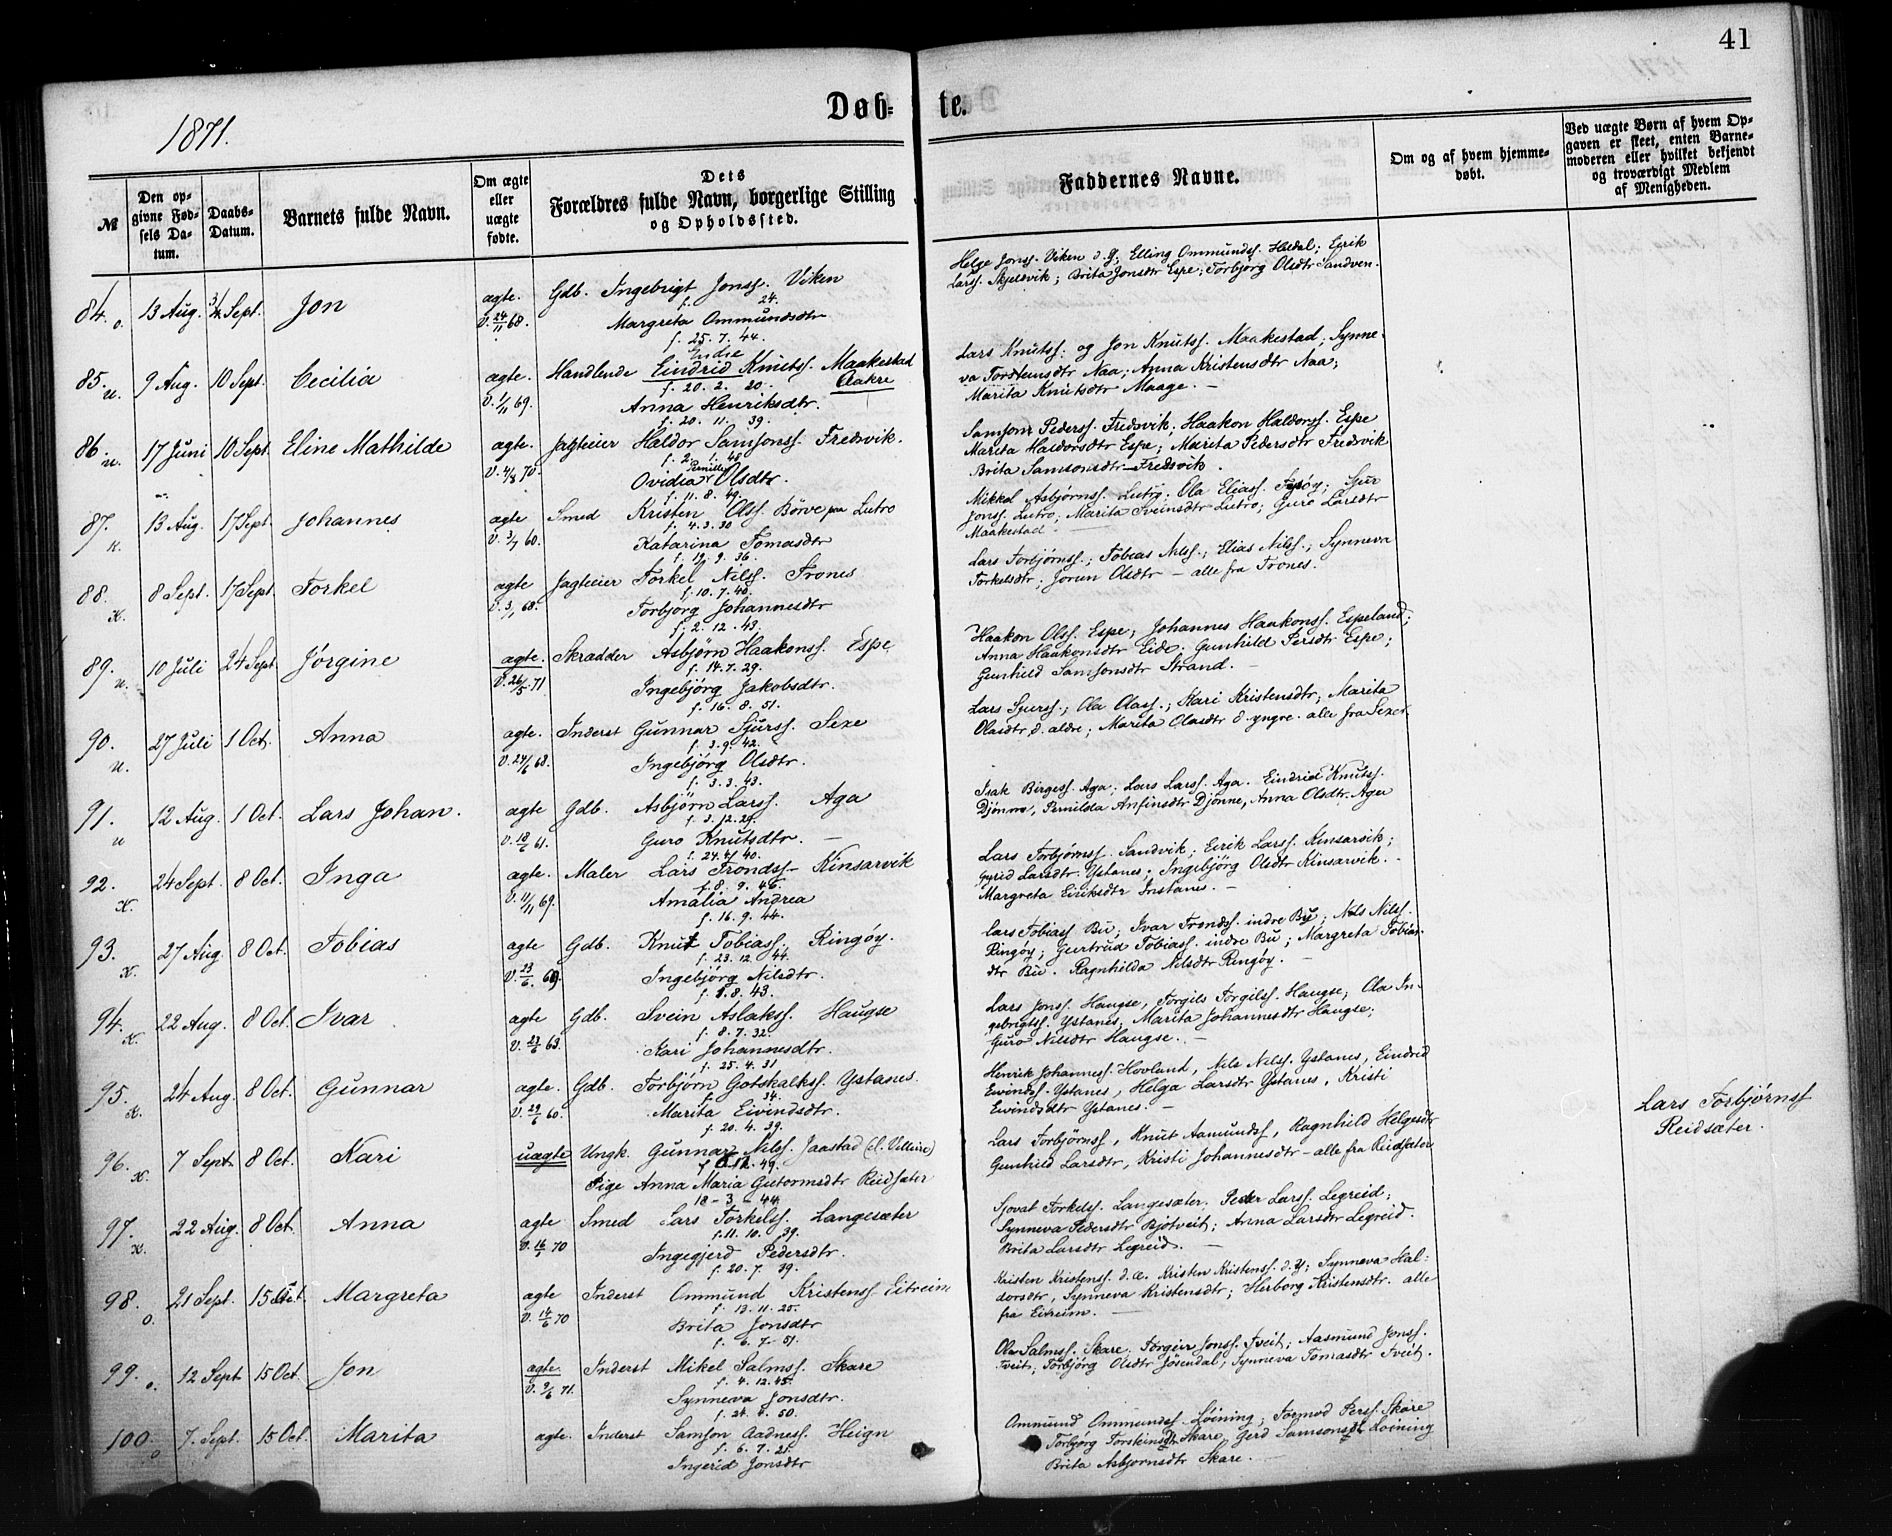 41
1871.
Døb- te.
№
Den opgivne Fødsels Datum.
Daabs-Datum.
Barnets fulde Navn.
Om ægte eller uægte fødte.
Dets Forældres fulde Navn, borgerlige Stilling og Opholdssted.
Faddernes Navne.
Om og af hvem hjemmedøbt.
Ved uægte Børn af hvem Opgaven er skeet, enten Barnemoderen eller hvilket bekjendt og troværdigt Medlem af Menigheden.
84. o. 13 Aug. Sept. Jon ægte. Gdb. Ingebrigt Jonss. Viken
f. 24.
V. 24/11 68. Margreta Ommundsdtr
f. 25. 7. 44.
Helge Jonss. Viken d. y; Elling Ommundss. Hildal; Eirik
Larss. Skjelsvik; Brita Jonsdtr Espe; Torbjorg Olsdtr Sandven.
85. u. 9 Aug. 10 Sept. Cecilia ægte. Handlende Eindrid Knutss. Maakestad
Endre
f. 20. 2. 20. Aakre
V. 1/11 69. Anna Henriksdtr.
f. 20. 11. 39.
Lars Knutss: og Jon Knutss. Maakestad; Synne-
va Torsteinsdtr Naa; Anna Kristensdtr Naa;
Marita Knutsdtr Maage. —
86. u. 17 Juni 10 Sept. Eline Mathilde ægte. Jagteier Haldor Samsonss. Fredsvik.
f. 2. 1. 48
V. 4/8 70. Ovidia Pernille Olsdtr.
f. 11. 8. 49.
Samson Pederss. Fredsvik; Haakon Haldorss. Espe
Marita Haldorsdtr Espe; Marita Pedersdtr Fredsvik
Brita Samsonsdtr Fredsvik.
87. K. 13 Aug. 17 Sept. Johannes ægte Smed Kristen Olss. Börve paa Lutro
f. 4. 3. 30
V. 3/7 60. Katarina Tomasdtr
f. 19. 9. 36.
Mikkel Asbjørnss. Lutro; Ola Eliass. Tysøy; Sjur
Jonss. Lutro; Marita Sveinsdtr Lutro; Guro Larsdtr
Maakestad.
88. K. 8 Sept. 17 Sept. Torkel ægte Jagteier Torkel Nilss. Trones
f. 10. 7. 40.
V. 3/1 68. Torbjorg Johannesdtr
f. 2. 12. 43.
Lars Torbjørnss.; Tobias Nilss.; Elias Nilss.; Synneva
Torkelsdtr; Jorun Olsdtr — alle fra Trones.
89. u. 10 Juli 24 Sept Jørgine ægte. Skrædder Asbjørn Haakonss. Espe
f. 14. 7. 29.
V. 26/5. 71 Ingebjørg Jakobsdtr.
f. 16. 8. 51.
Haakon Olss. Espe; Johannes Haakonss. Espeland;
Anna Haakonsdtr Eide; Gunhild Persdtr Espe;
Gunhild Samsonsdtr Strand. —
90. u. 27 Juli 1 Oct. Anna ægte. Inderst Gunnar Sjurss. Sexe
f. 3. 9. 42.
V. 24/6 68. Ingebjørg Olsdtr.
f. 3. 3. 43.
Lars Sjurss.; Ola Olass.; Kari Kristensdtr; Marita
Olasdtr d. ældre; Marita Olasdtr d. yngre. alle fra Sexe.
91. u 12 Aug. 1 Oct. Lars Johan. ægte Gdb. Asbjørn Larss. Aga
f. 3. 12. 29.
V. 18/6 61. Guro Knutsdtr. —
f. 24. 4 40.
Isak Birgess. Aga; Lars Larss. Aga. Eindrid Knutss.
Djønne, Pernilda Anfinsdtr Djönne, Anna Olsdtr. Aga
92. K. 24 Sept. 8 Oct. Inga ægte. Maler Lars Trondss — Kinsarvik
f. 8. 9. 46.
V. 11/11 69. Amalia Andrea
f. 16. 9. 44.
Lars Torbjørnss. Sandvik; Eirik Larss. Kinsarvik;
Gyrid Larsdtr. Ystanes; Ingebjörg Olsdtr Kinsarvik. —
Margreta Eiriksdtr Instanes. —
93. K. 27 Aug. 8 Oct. Tobias ægte Gdb. Knut Tobiass. Ringøy.
f. 23. 12 44.
V. 23/6. 69 Ingebjørg Nilsdtr.
f. 1. 8. 43.
Lars Tobiass Bu; Ivar Trondss. indre Bu; Nils Nilss.
Ringöy; Gurtrud Tobiass. indre Bu; Margreta Tobias-
dtr Bu. Ragnhilda Nilsdtr Ringöy. —
94. K. 22 Aug. 8 Oct. Ivar ægte Gdb. Svein Aslakss. Haugse
f. 8. 7. 32.
V. 23/6 63. Kari Johannesdtr.
f. 25. 4. 31
Lars Jonss. Haugse, Torgils Torgilss. Haugse; Ola In-
gebrigtss. Ystanes, Marita Johannesdtr Haugse;
Guro Nilsdtr Haugse. —
95. K. 24 Aug. 8 Oct. Gunnar ægte. Gdb. Torbjörn Gotskalkss. Ystanes.
f. 34.
V. 29/6 60. Marita Eivindsdtr.
f. 20. 4. 39.
Henrik Johanness. Hovland, Nils Nilss. Ystanes, Eindrid
Eivindss. Ystanes, Helga Larsdtr Ystanes, Kristi
Eivindsdtr Ystanes. —
96. K. 7 Sept. 8 Oct. Kari uægte Ungk. Gunnar Nilss. Jaastad
49.
Pige Anna Maria Gutormsdtr Reidsæter
18 - 3 - 44.
Lars Torbjörnss, Knut Aamundss, Ragnhild Helgesdtr
Gunhild Larsdtr, Kristi Johannesdtr — alle fra Reidsæter
Lars Torbjørnss
Reidsæter.
97. K. 22 Aug. 8 Oct. Anna ægte Smed Lars Torkelss. Langesæter
f. 11. 10. 39.
V. 16/5 70 Ingegjerd Pedersdtr.
f. 20. 7. 39.
Sjovat Torkelss. Langesæter, Peder Larss. Legreid;
Synneva Pedersdtr Bjotveit; Anna Larsdtr Legreid.
Brita Larsdtr Legreid. —
98. o. 21 Sept. 15 Oct. Margreta ægte Inderst Ommund Kristenss Eitreim
f. 13. 11. 25.
V. 14/6 70 Brita Jonsdtr
f. 6. 7. 51.
Kristen Kristenss. d. æ. Kristen Kristenss. d. y; Synneva Hal-
dorsdtr, Synneva Kristensdtr; Herborg Kristensdtr. alle
fra Eitreim. —
99. o. 12 Sept 15 Oct. Jon ægte. Inderst Mikel Salmss. Skare
f. 4. 12. 45.
V. 9/6 71. Synneva Jonsdtr.
f. 24. 50.
Ola Salmss. Skare. Torgeir Jonss. Tveit; Aasmund Jonss.
Tveit; Torbjörg Olsdtr Jösendal; Synneva Tomasdtr Tveit.
100. o 7. Sept. 15 Oct. Marita ægte. Inderst Samson Aadness. Heign
f. 6. 7. 25.
Ingerid Jonsdtr
Ommund Ommundss Löining; Tormod Perss. Skare
Torbjörg Torsteinsdtr Skare, Gerd Samsonsdtr Löining
Brita Asbjornsdtr Skare. —